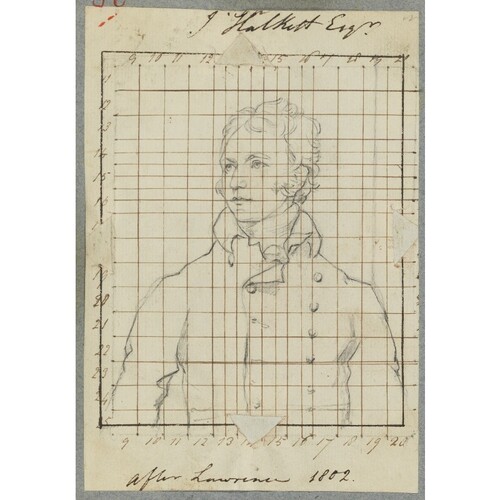 J. Halkett Esqr.
9 10 11 13 15 16 17 18 19 20
11
12
13
14
15
16
19
20
21
22
23
24
9 10 11 12 13 14 15 16 17 18 19 20
after Lawrence 1802.